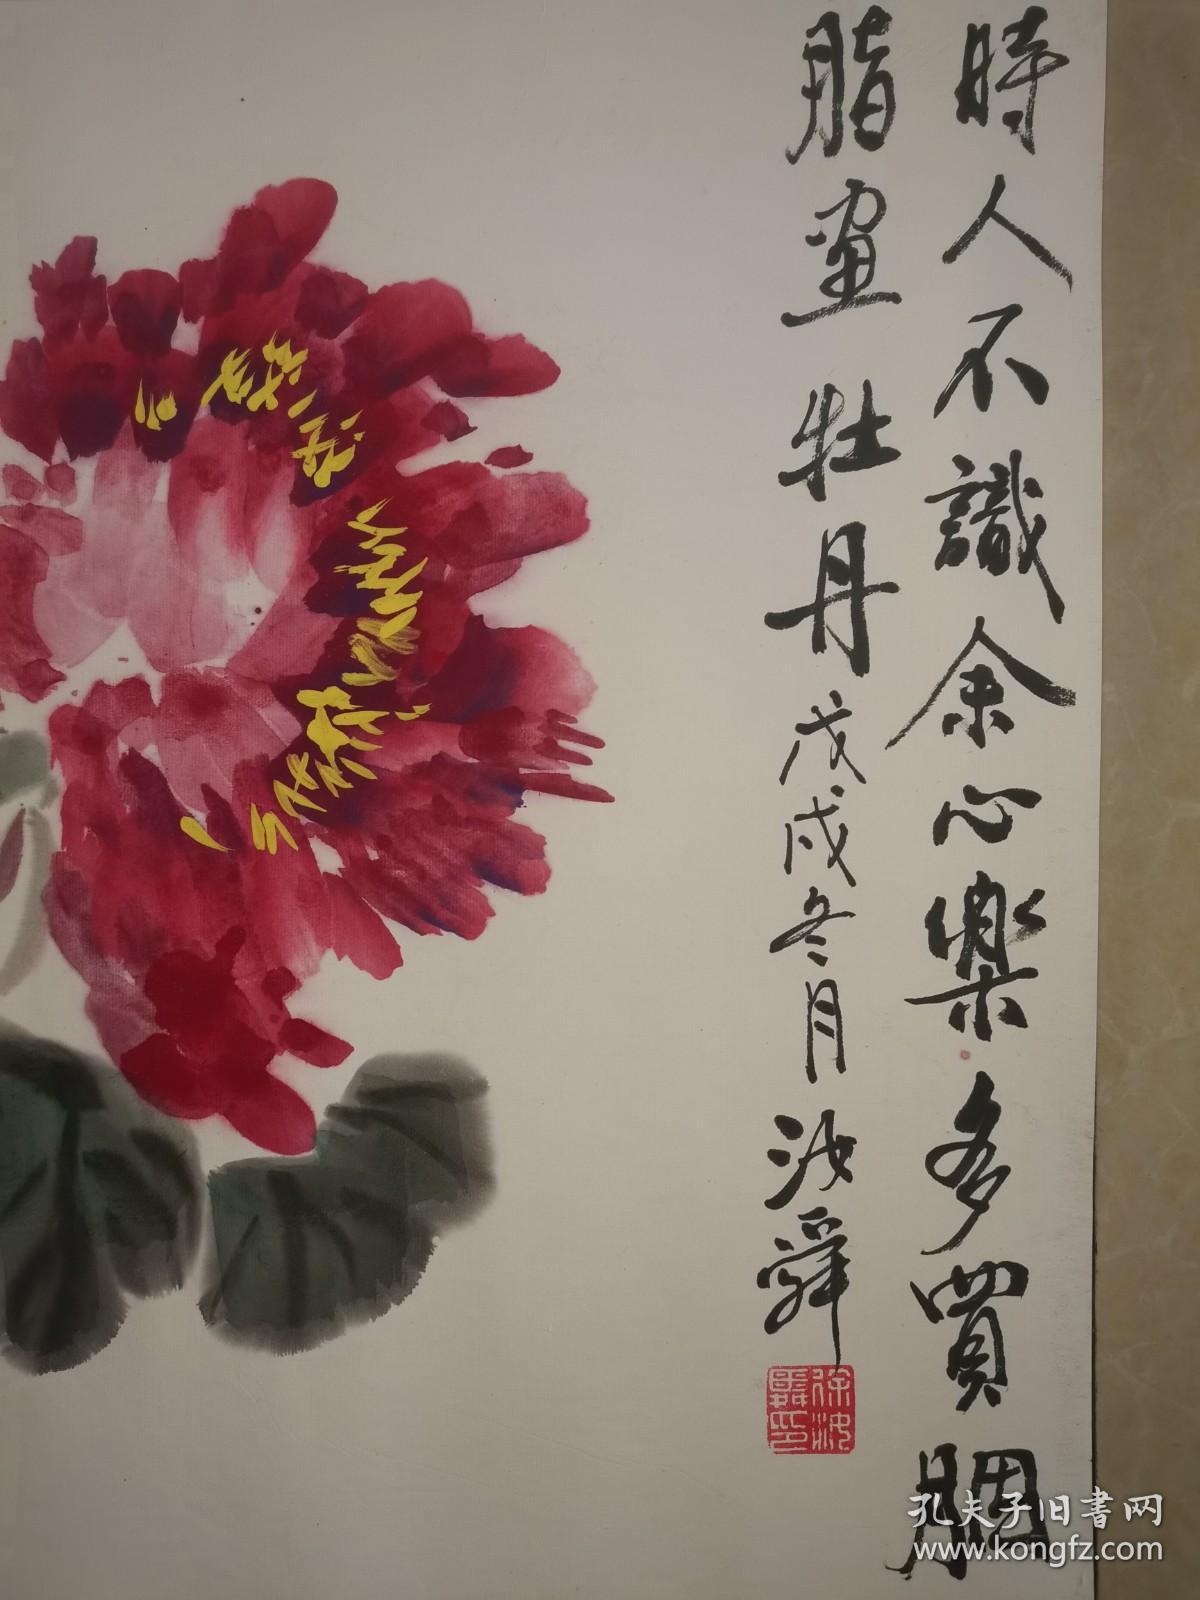 時人不識余心樂多買胭
脂畫牡丹戊戌冬月汝舜
孔夫子旧书网
www.kongfz.com